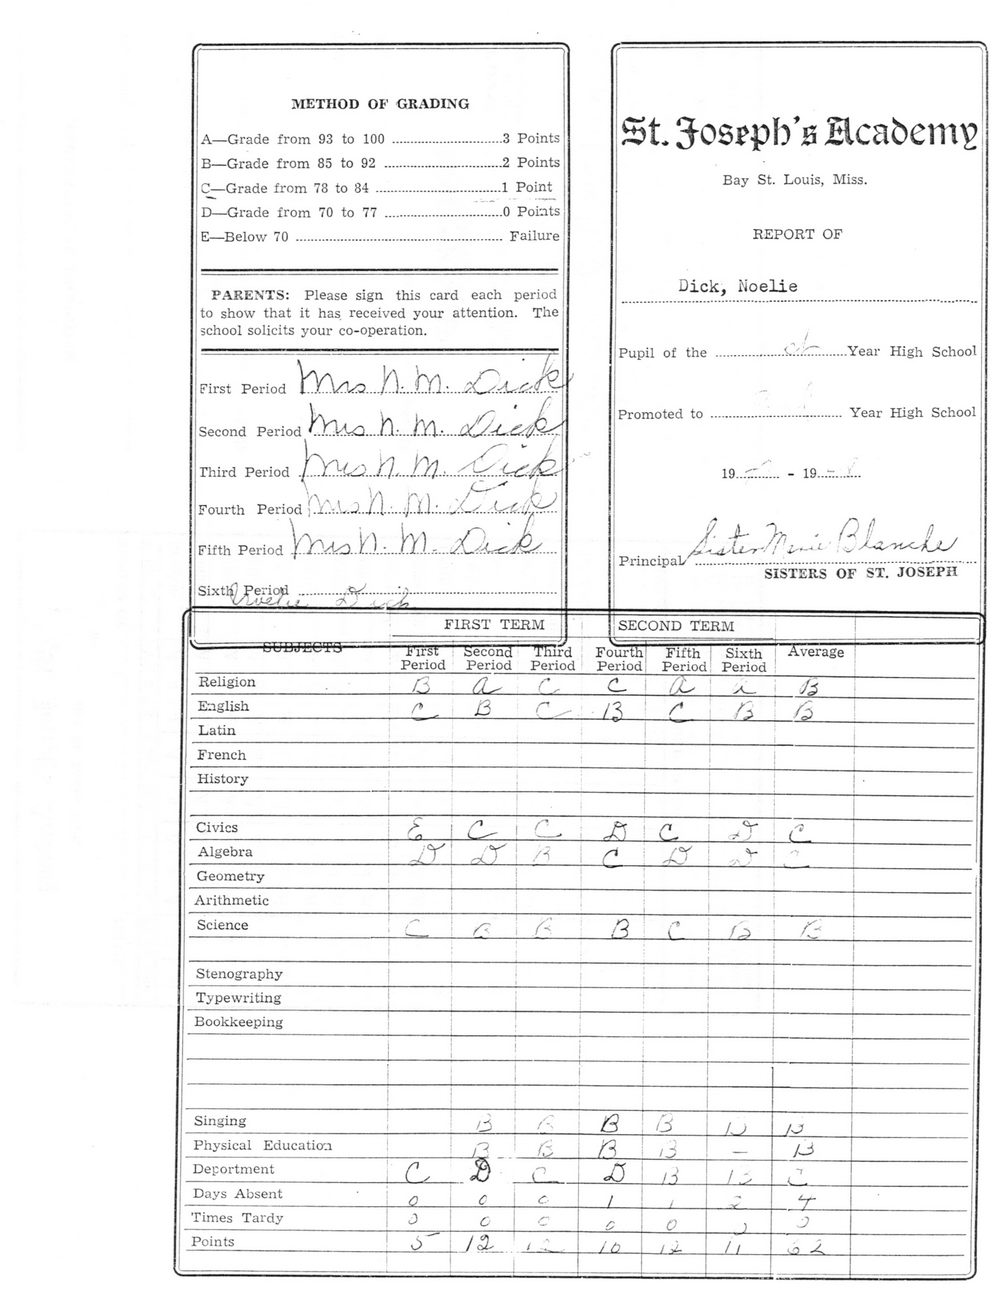 METHOD OF GRADING
A—Grade from 93 to 100 ............................3 Points
B—Grade from 85 to 92 ..............................2 Points
C—Grade from 78 to 84 ................................1 Point
D—Grade from 70 to 77 ..............................0 Points
E—Below 70 .................................................... Failure
PARENTS: Please sign this card each period
to show that it has received your attention. The
school solicits your co-operation.
First Period Mrs N. M. Dick
Second Period Mrs N. M. Dick
Third Period Mrs N. M. Dick
Fourth Period Mrs N. M. Dick
Fifth Period Mrs N. M. Dick
Sixth Period Noelie Dick
St. Joseph's Academy
Bay St. Louis, Miss.
REPORT OF
Dick, Noelie
Pupil of the Year High School
Promoted to Year High School
19 - 19
Principal Sister Marie Blanche
SISTERS OF ST. JOSEPH
FIRST TERM SECOND TERM
SUBJECTS First Period Second Period Third Period Fourth Period Fifth Period Sixth Period Average
Religion B A C C A A B
English C B C B C B B
Latin
French
History
Civics E C C D C D C
Algebra D D B C D D C
Geometry
Arithmetic
Science C B B B C B B
Stenography
Typewriting
Bookkeeping
Singing B B B B B B
Physical Education B B B B — B
Deportment C D C D B B C
Days Absent 0 0 0 1 1 2 4
Times Tardy 0 0 0 0 0 0 0
Points 5 12 12 10 12 11 62